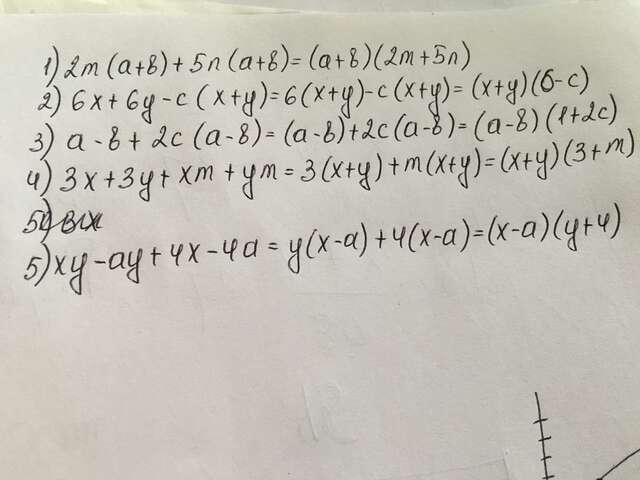 1) 2m (a+b) + 5n (a+b) = (a+b) (2m+5n)
2) 6x + 6y - c (x+y) = 6 (x+y) - c (x+y) = (x+y) (6-c)
3) a - b + 2c (a-b) = (a-b) + 2c (a-b) = (a-b) (1+2c)
4) 3x + 3y + xm + ym = 3 (x+y) + m (x+y) = (x+y) (3+m)
5)
5) xy - ay + 4x - 4a = y (x-a) + 4 (x-a) = (x-a) (y+4)